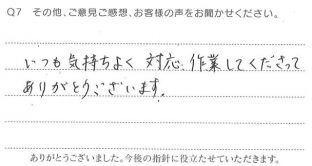 Q7 その他、ご意見ご感想、お客様の声をお聞かせください。
いつも気持ちよく 対応、作業してくださって
ありがとうございます。
ありがとうございました。今後の指針に役立たせていただきます。